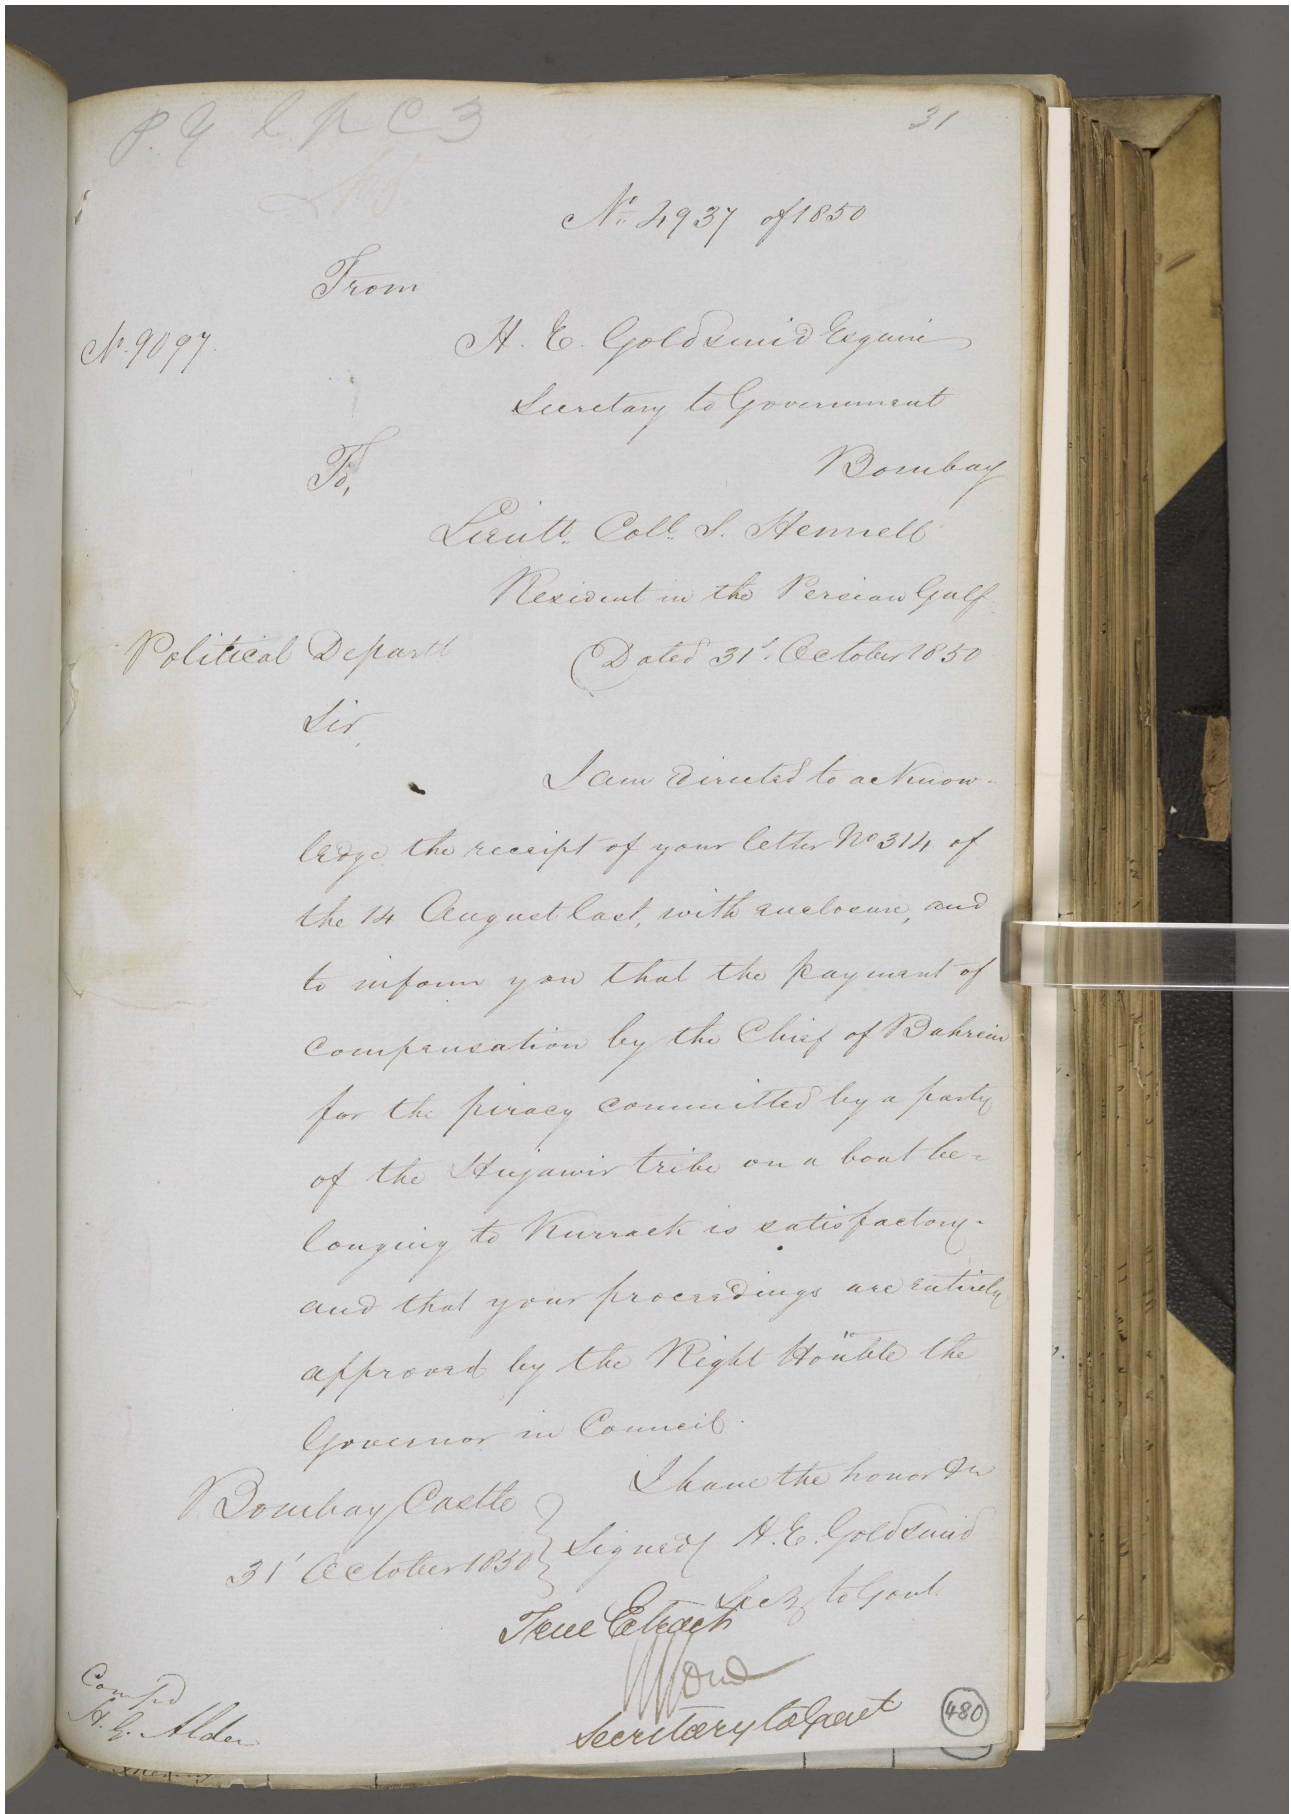 31
No. 4937 of 1850
From
No. 9097.
H. E. Goldsmid Esquire
Secretary to Government
Bombay
To,
Lieutt. Coll. S. Hennell
Resident in the Persian Gulf
Political Departt
Dated 31st. October 1850
Sir,
I am directed to acknow-
ledge the receipt of your letter No 314 of
the 14 August last, with enclosure, and
to inform you that the payment of
compensation by the Chief of Bahrein
for the piracy committed by a party
of the Hujawir tribe on a boat be-
longing to Kurrack is satisfactory-
and that your proceedings are entirely
approved by the Right Honble the
Governor in Council.
I have the honor &c
Bombay Castle
31st October 1850
Signed/ H. E. Goldsmid
Secy. to Govt.
True Extract
Secretary to Govt
Compd
H. G. Alder
480